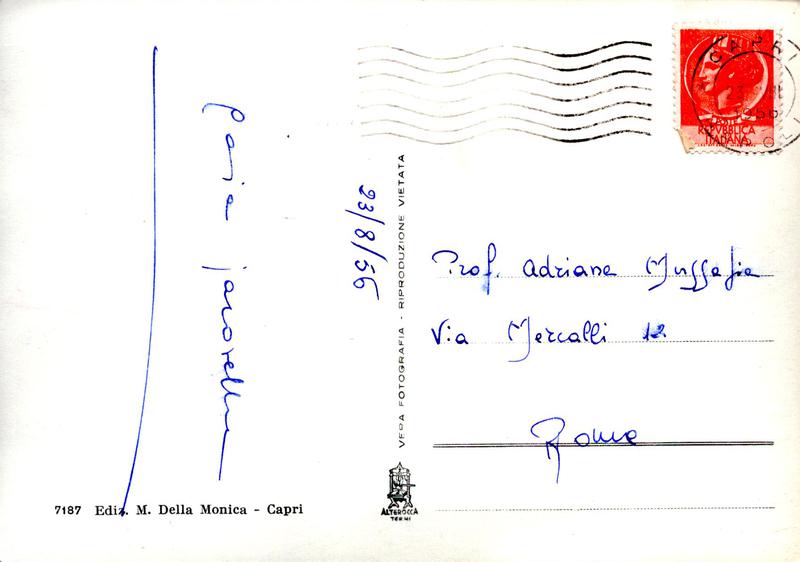 CAPRI
1956
POSTE
REPVBBLICA
ITALIANA
23/8/56
VERA FOTOGRAFIA - RIPRODUZIONE VIETATA
Prof. Adriana Mussafia
Via Mercalli 12
Roma
ALTEROCCA
TERNI
7187 Ediz. M. Della Monica - Capri